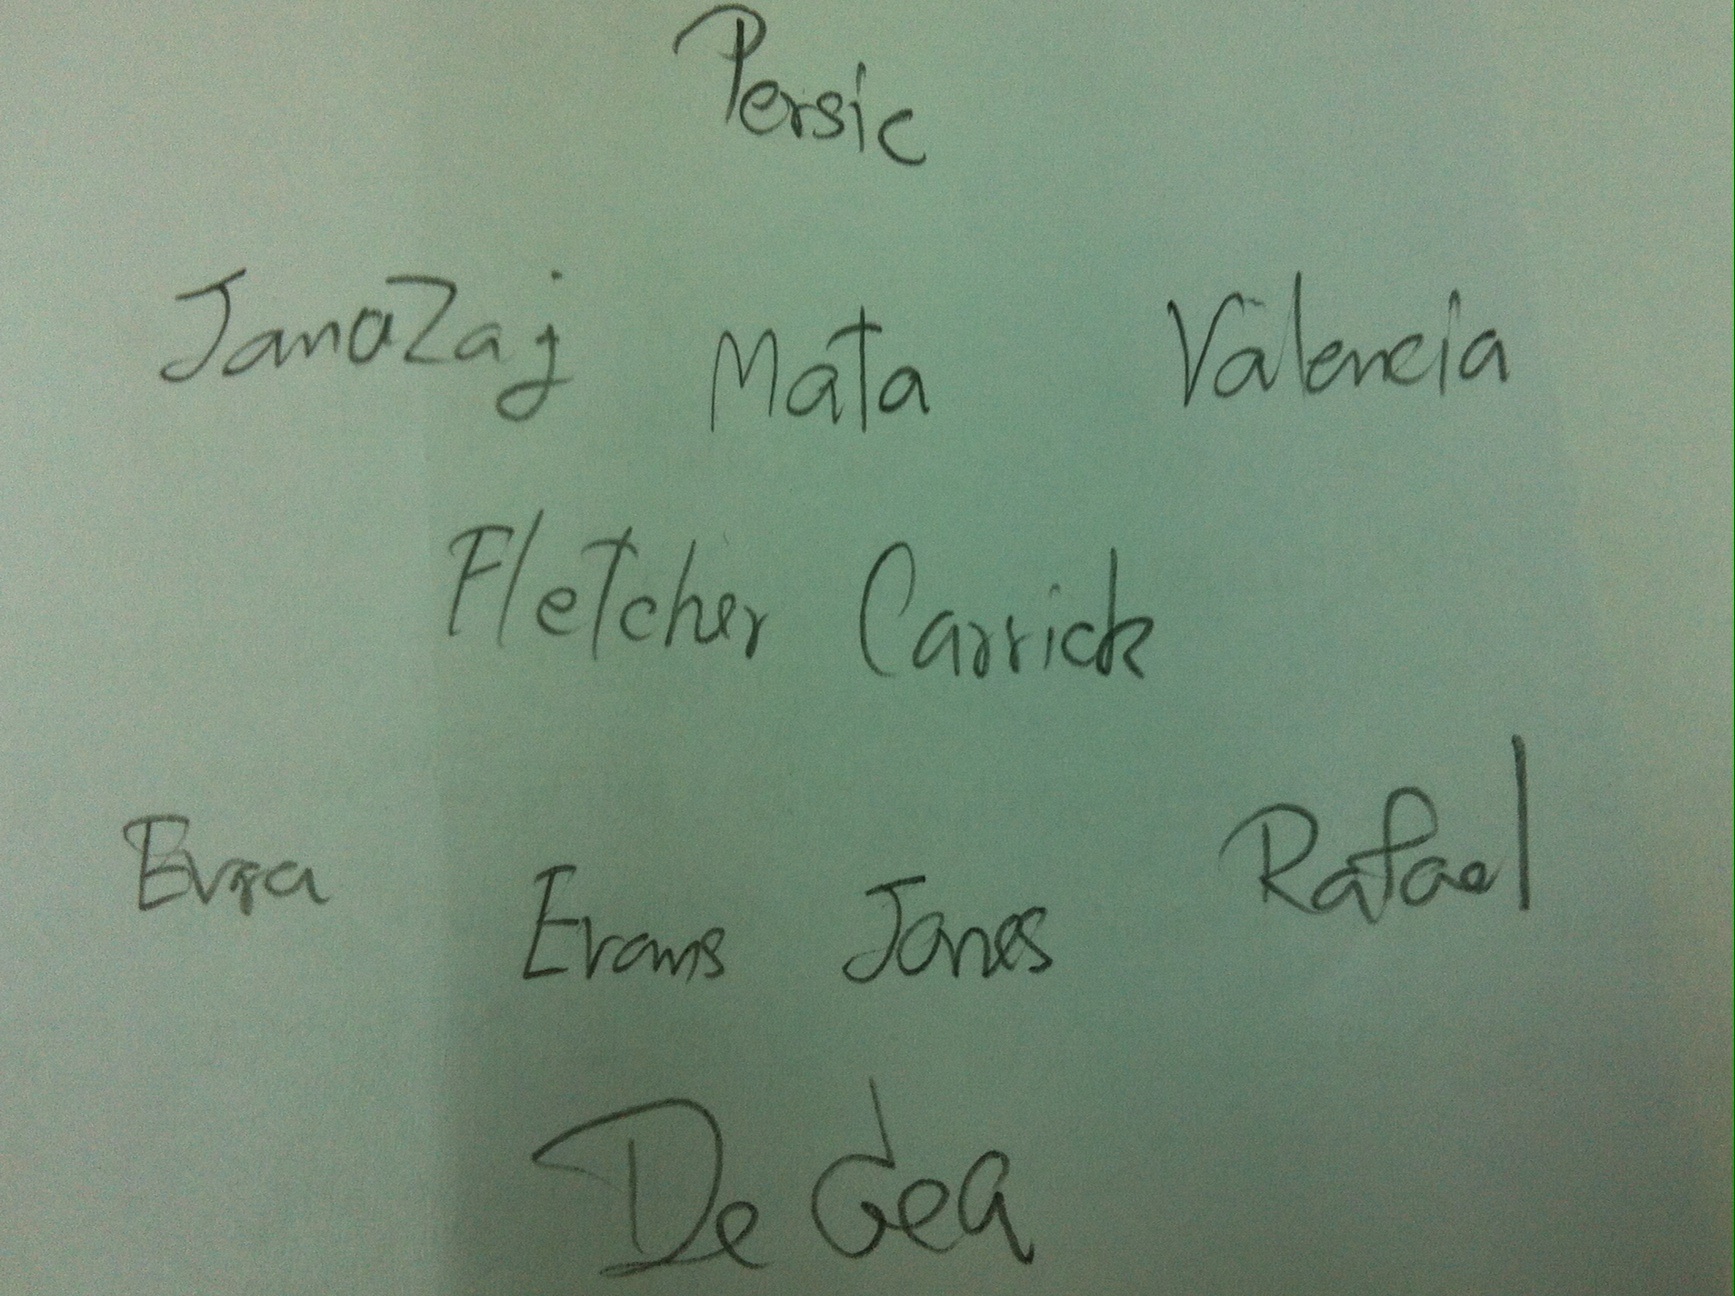 Persic
Janazaj Mata Valencia
Fletcher Carrick
Evra Evans Jones Rafael
De Gea